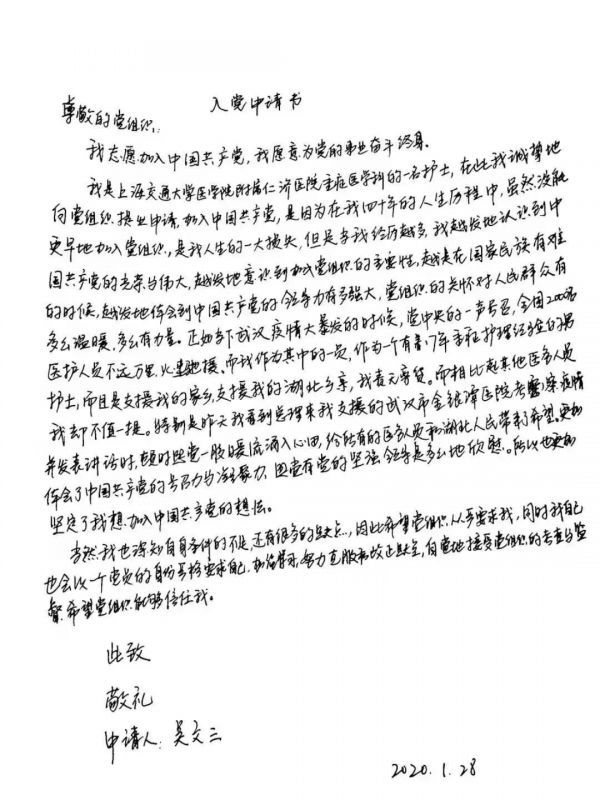 入党申请书
尊敬的党组织:
我志愿加入中国共产党,我愿意为党的事业奋斗终身。
我是上海交通大学医学院附属仁济医院重症医学科的一名护士,在此我诚挚地
向党组织提出申请,加入中国共产党,是因为在我四十年的人生历程中,虽然没能
更早地加入党组织,是我人生的一大损失,但是当我经历越多,我越发地认识到中
国共产党的光荣与伟大,越发地意识到加入党组织的重要性,越是在国家民族有难
的时候,越发地体会到中国共产党的领导力有多强大,党组织的关怀对人民群众有
多么温暖,多么有力量。正如当下武汉疫情大暴发的时候,党中央的一声号召,全国
医护人员不远万里,火速驰援。而我作为其中的一员,作为一个有着17年重症护理经验的男
护士,而且是支援我的家乡,支援我的湖北乡亲,我责无旁贷。而相比起其他医务人员
我却不值一提。特别是昨天我看到总理来我支援的武汉市金银潭医院考察疫情
并发表讲话时,顿时觉一股暖流涌入心田,给所有的医务人员和湖北人民带来了希望。更加
体会了中国共产党的号召力与凝聚力,因党有党的坚强领导是多么地欣慰。所以也更加
坚定了我想加入中国共产党的想法。
当然我也深知自身条件的不足,还有很多的缺点,因此希望党组织从严要求我,同时我自己
也会以一个党员的身份严格要求自己,努力克服和改正缺点,自觉地接受党组织的考查与监
督。希望党组织能够信任我。
此致
敬礼
申请人:吴文三
2020.1.28